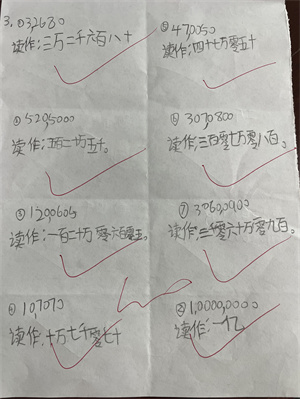 3. ①32680
读作:三万二千六百八十
⑤47,0050
读作:四十七万零五十
②520,5000
读作:五百二十万五千。
⑥307,0800
读作:三百零七万零八百。
③120,0605
读作:一百二十万零六百零五。
⑦3060,0900
读作:三千零六十万零九百。
④10,7070
读作:十万七千零七十
⑧1,0000,0000
读作:一亿